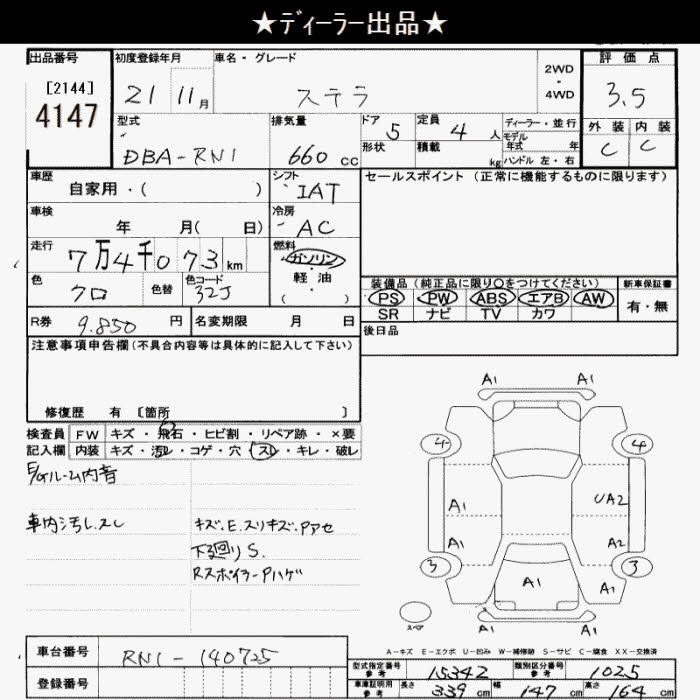 ★ディーラー出品★
出品番号
[2144]
4147
初度登録年月
21 11月
車名・グレード
ステラ
2WD
・
4WD
評価点
3.5
外装 内装
C C
型式
DBA-RN1
排気量
660 CC
ドア 5
形状
定員 4 人
積載 kg
ディーラー・並行
モデル
年式 年
ハンドル 左・右
車歴
自家用・( )
シフト
IAT
セールスポイント (正常に機能するものに限ります)
車検
年 月( 日)
冷房
AC
走行
7万4千073 km
燃料
ガソリン
・
軽油
( ・ )
色
クロ
色替
色コード
32J
装備品(純正品に限り○をつけてください)
PS PW ABS エアB AW
SR ナビ TV カワ
新車保証書
有・無
R券 9.850 円
名変期限 月 日
後日品
注意事項申告欄(不具合内容等は具体的に記入して下さい)
修復歴 有 〔箇所 〕
検査員
記入欄
FW キズ・飛石・ヒビ割・リペア跡・×要
内装 キズ・汚レ・コゲ・穴・スレ・キレ・破レ
E/Gルーム内音
車内汚レ.スレ
キズ.E.スリキズ.Pアセ
下廻りS.
RスポイラーPハゲ
A1 A1
4 4
A1 UA2
A1 A2
3 3
A1 A1
スペア
A1 A1
A-キズ E-エクボ U-凹み W-補修跡 S-サビ C-腐食 XX-交換済
車台番号
RN1-140725
登録番号
型式指定番号
参考
15342
類別区分番号
参考
1025
車庫証明用
参考
長さ 339 cm 幅 147 cm 高さ 164 cm